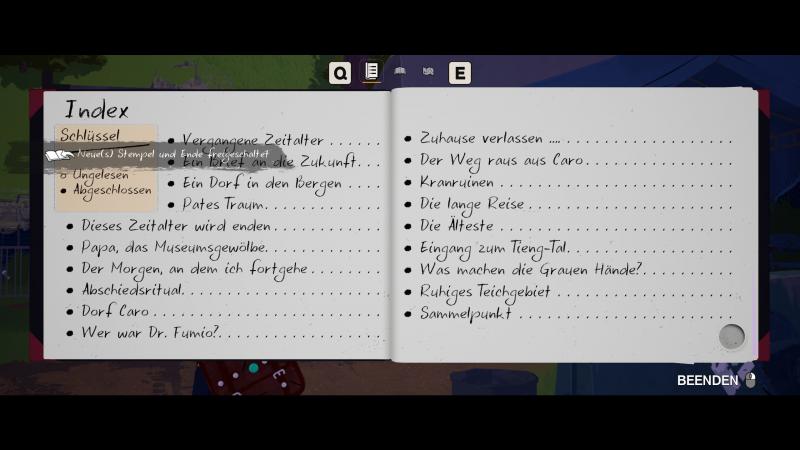 Q
E
Index
Schlüssel
Neue(s) Stempel und Ende freigeschaltet
Ungelesen
Abgeschlossen
Vergangene Zeitalter ......
Ein Brief an die Zukunft...
Ein Dorf in den Bergen .....
Pates Traum..............
Dieses Zeitalter wird enden ............
Papa, das Museumsgewölbe.............
Der Morgen, an dem ich fortgehe ........
Abschiedsritual......................
Dorf Caro .........................
Wer war Dr. Fumio?..................
Zuhause verlassen ....................
Der Weg raus aus Caro..................
Kranruinen ...........................
Die lange Reise ........................
Die Älteste ...........................
Eingang zum Tieng-Tal...................
Was machen die Grauen Hände?..........
Ruhiges Teichgebiet ....................
Sammelpunkt ........................
BEENDEN